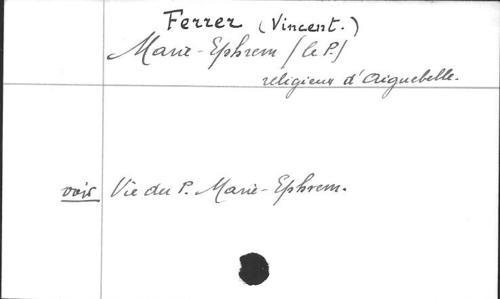 Ferrer (Vincent.)
Marie-Ephrem (le P.)
religieux d'Aiguebelle.
voir Vie du P. Marie-Ephrem.